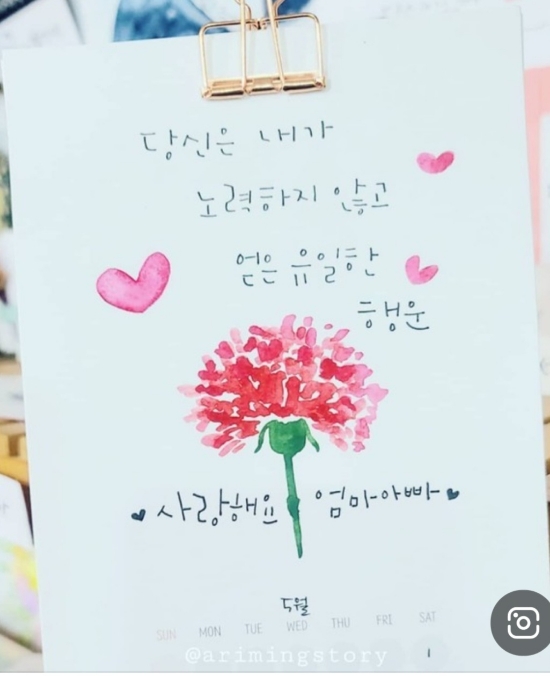 당신은 내가
노력하지 않고
얻은 유일한
행운
사랑해요 엄마아빠
5월
SUN MON TUE WED THU FRI SAT
1
@arimingstory